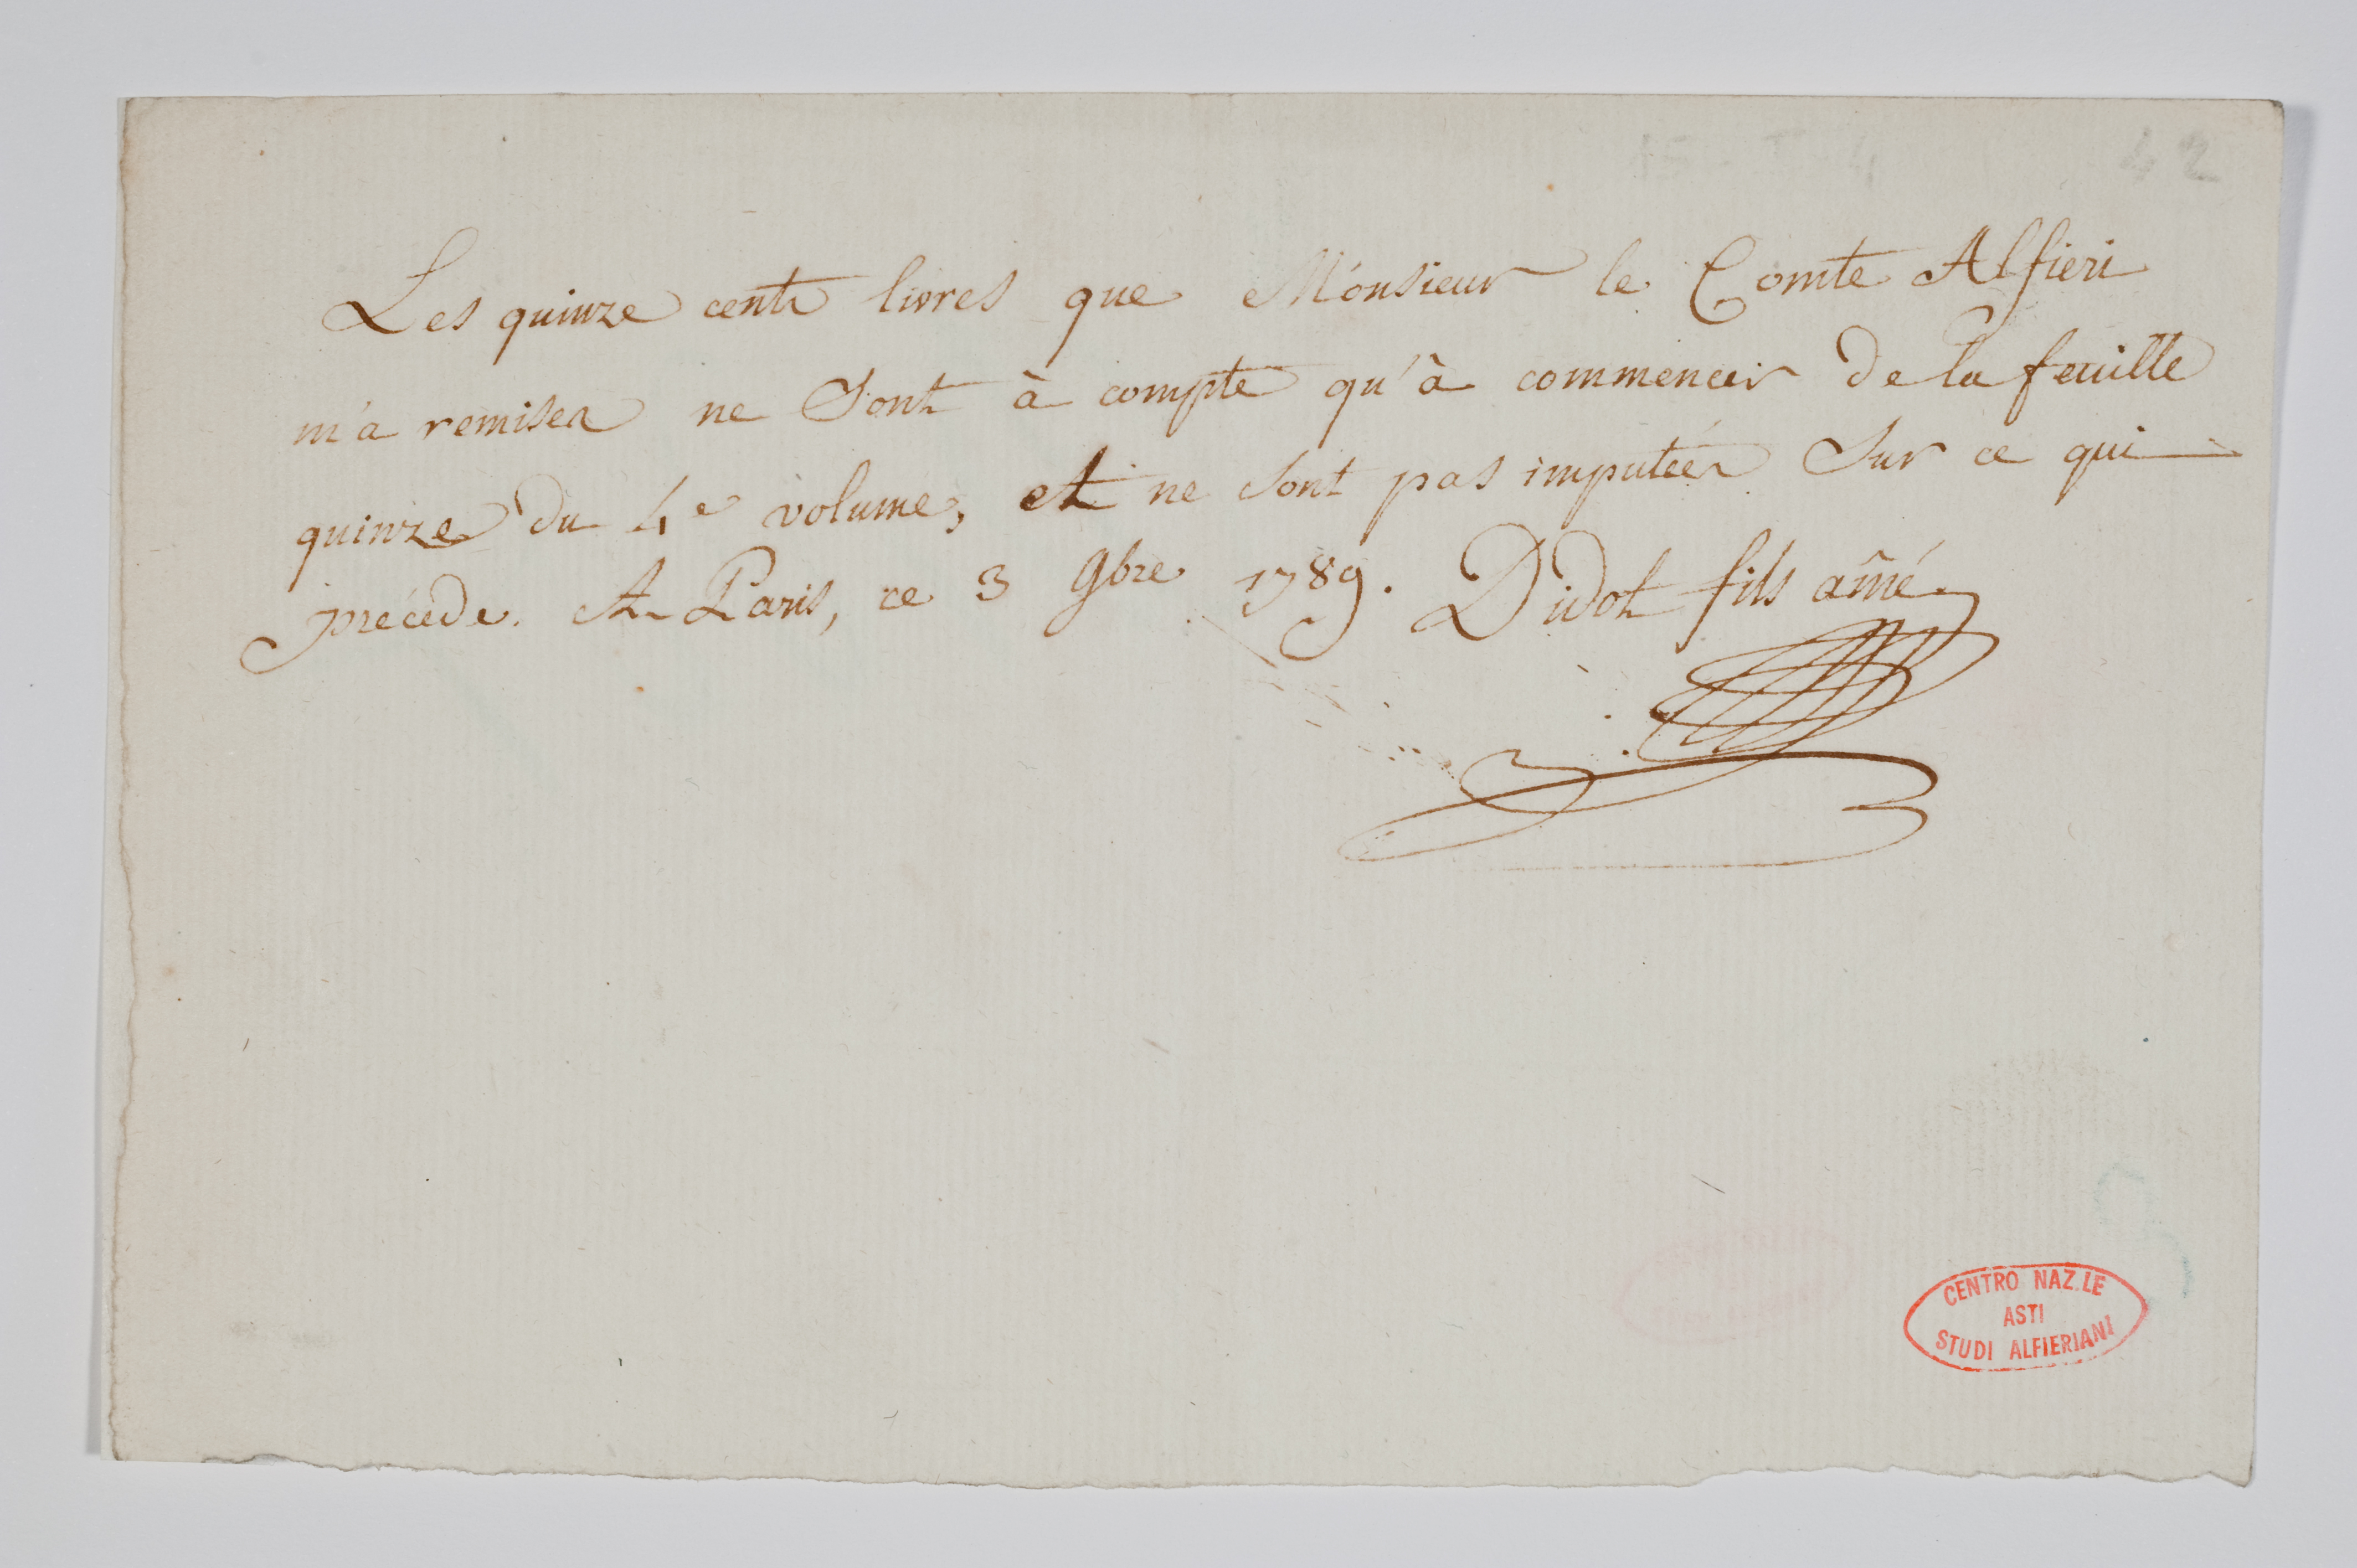 42
Les quinze cents livres que Monsieur le Comte Alfieri
m'a remises ne sont à compte qu'à commencer de la feuille
quinze du 4e volume, et ne sont pas imputées sur ce qui
précede. A Paris, ce 3 9bre 1789. Didot fils aîné.
CENTRO NAZ.LE
ASTI
STUDI ALFIERIANI